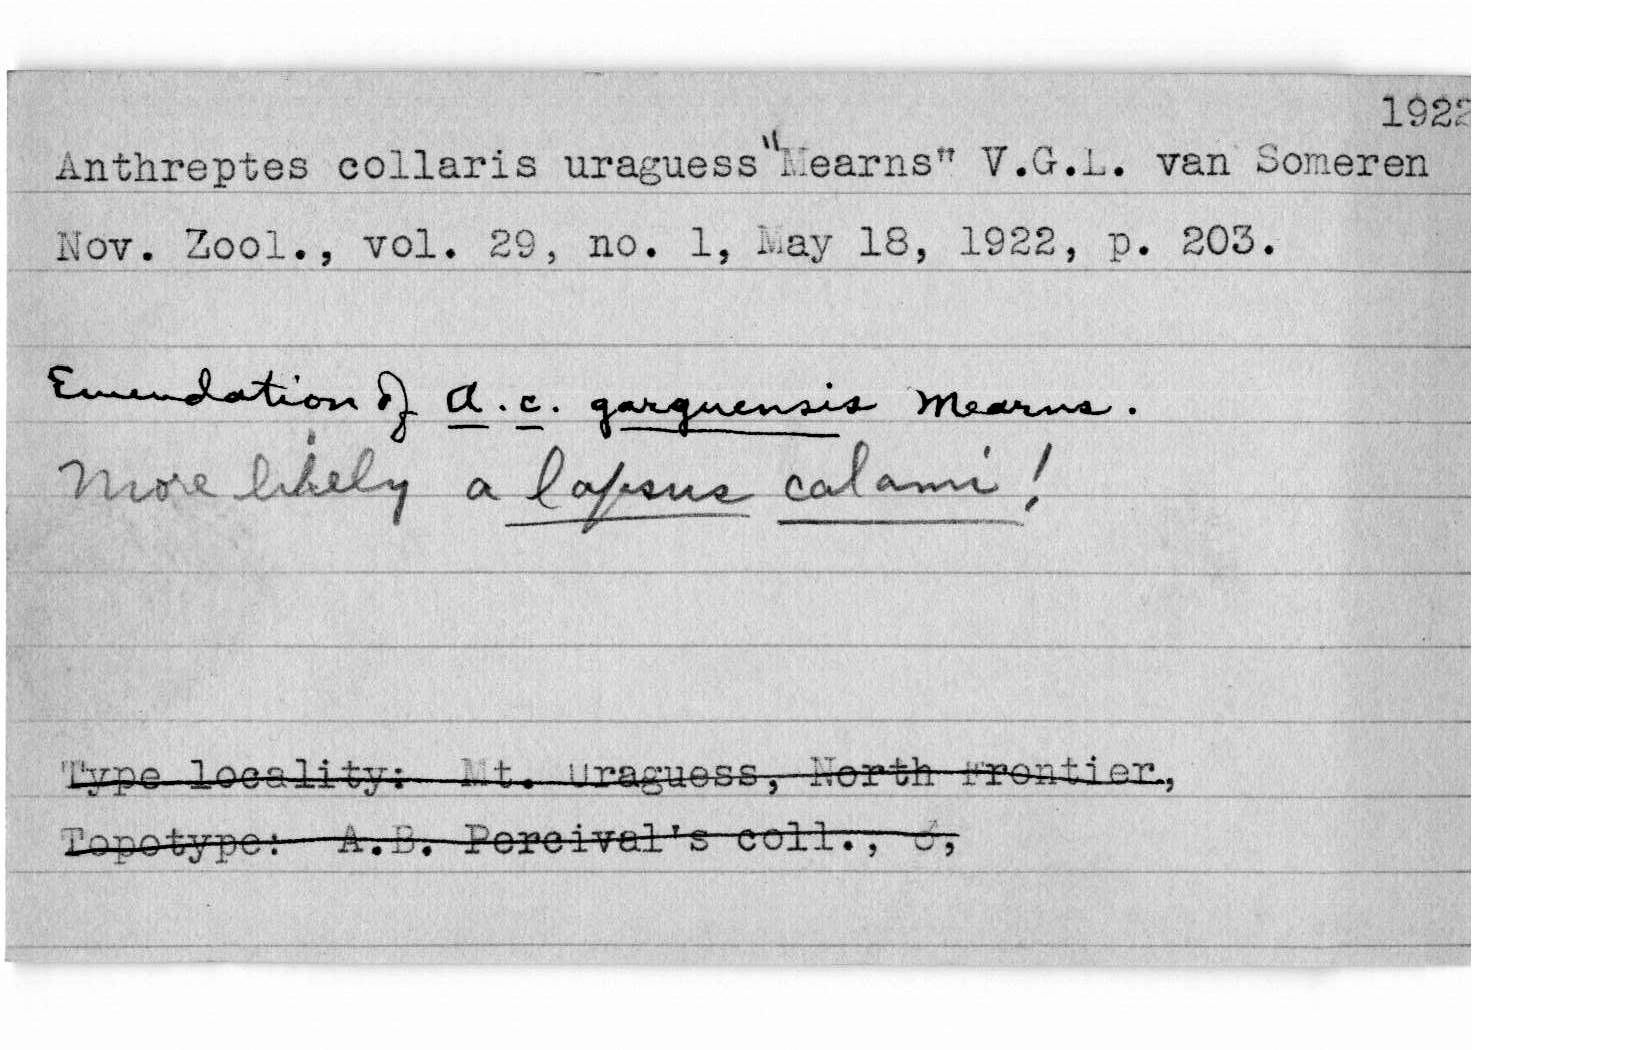 1922
Anthreptes collaris uraguess "Mearns" V.G.L. van Someren
Nov. Zool., vol. 29, no. 1, May 18, 1922, p. 203.
Emendation of A. c. garguensis Mearns.
More likely a lapsus calami!
Type locality: Mt. Uraguess, North Frontier,
Topotype: A.B. Percival's coll., ♂,